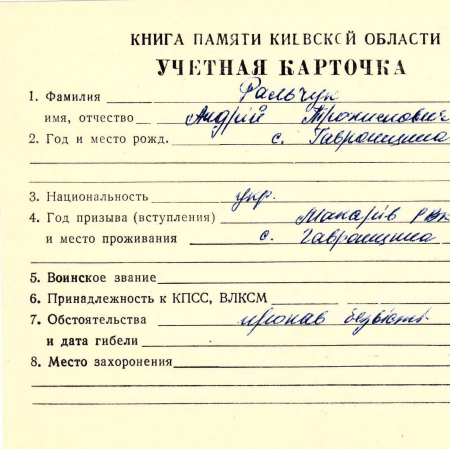 КНИГА ПАМЯТИ КИЕВСКОЙ ОБЛАСТИ
УЧЕТНАЯ КАРТОЧКА
1. Фамилия Фальчук
имя, отчество Андрій
2. Год и место рожд. с. Гавронщина
3. Национальность укр.
4. Год призыва (вступления) Макарів РВК
и место проживания с. Гавронщина
5. Воинское звание
6. Принадлежность к КПСС, ВЛКСМ
7. Обстоятельства пропав безвісти
и дата гибели
8. Место захоронения